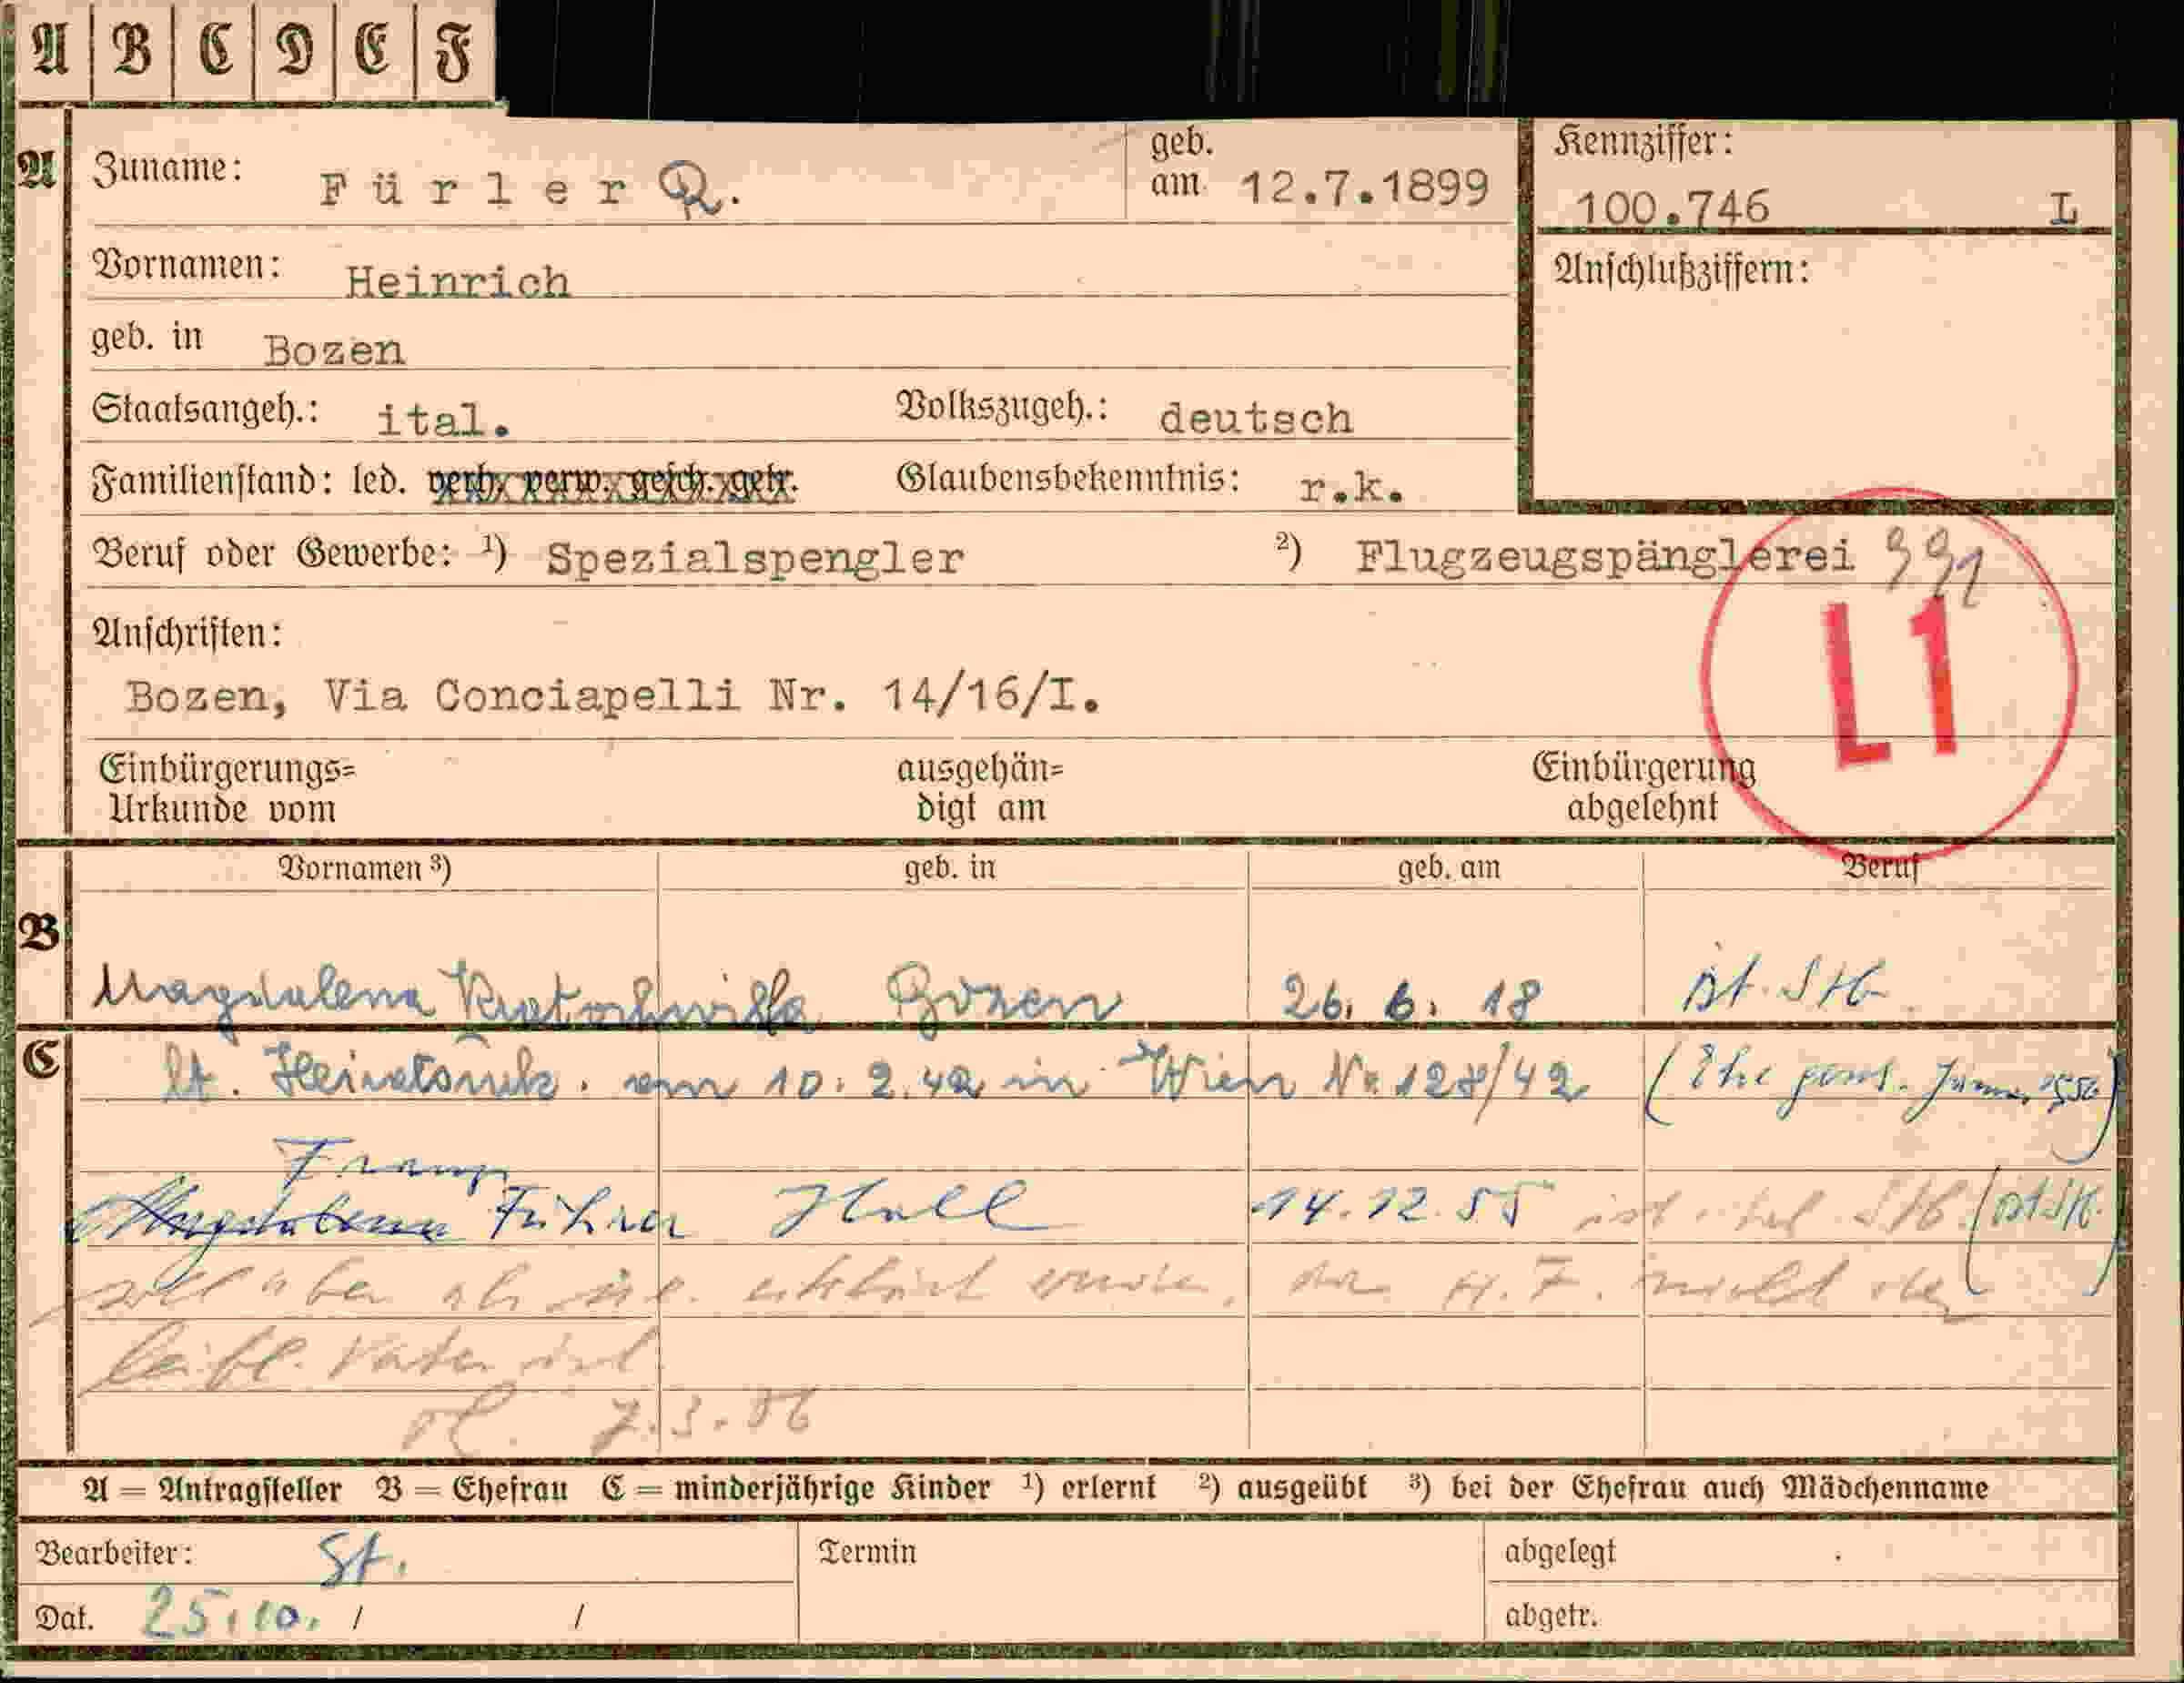 A B C D E F
A Zuname: Fürler R. geb. am 12.7.1899 Kennziffer: 100.746 L
Vornamen: Heinrich Anschlußziffern:
geb. in Bozen
Staatsangeh.: ital. Volkszugeh.: deutsch
Familienstand: led. verh. verw. gesch. getr. Glaubensbekenntnis: r.k.
Beruf oder Gewerbe: ¹) Spezialspengler ²) Flugzeugspänglerei 391
L1
Anschriften:
Bozen, Via Conciapelli Nr. 14/16/I.
Einbürgerungs= ausgehän= Einbürgerung
Urkunde vom digt am abgelehnt
Vornamen ³) geb. in geb. am Beruf
B
Magdalena Bozen 26. 6. 18 öst. Stb.
C
lt. Heiratsurk. am 10. 2. 42 in Wien Nr. 128/42 (Ehe
Franz
Magdalena Hall 14.12.55 ist ital. Stb. (öst. Stb.
soll aber als erklärt H. F. nicht der
leibl. Vater ist
7.3.56
A = Antragsteller B = Ehefrau C = minderjährige Kinder ¹) erlernt ²) ausgeübt ³) bei der Ehefrau auch Mädchenname
Bearbeiter: St. Termin abgelegt
Dat. 25.10. / / abgetr.